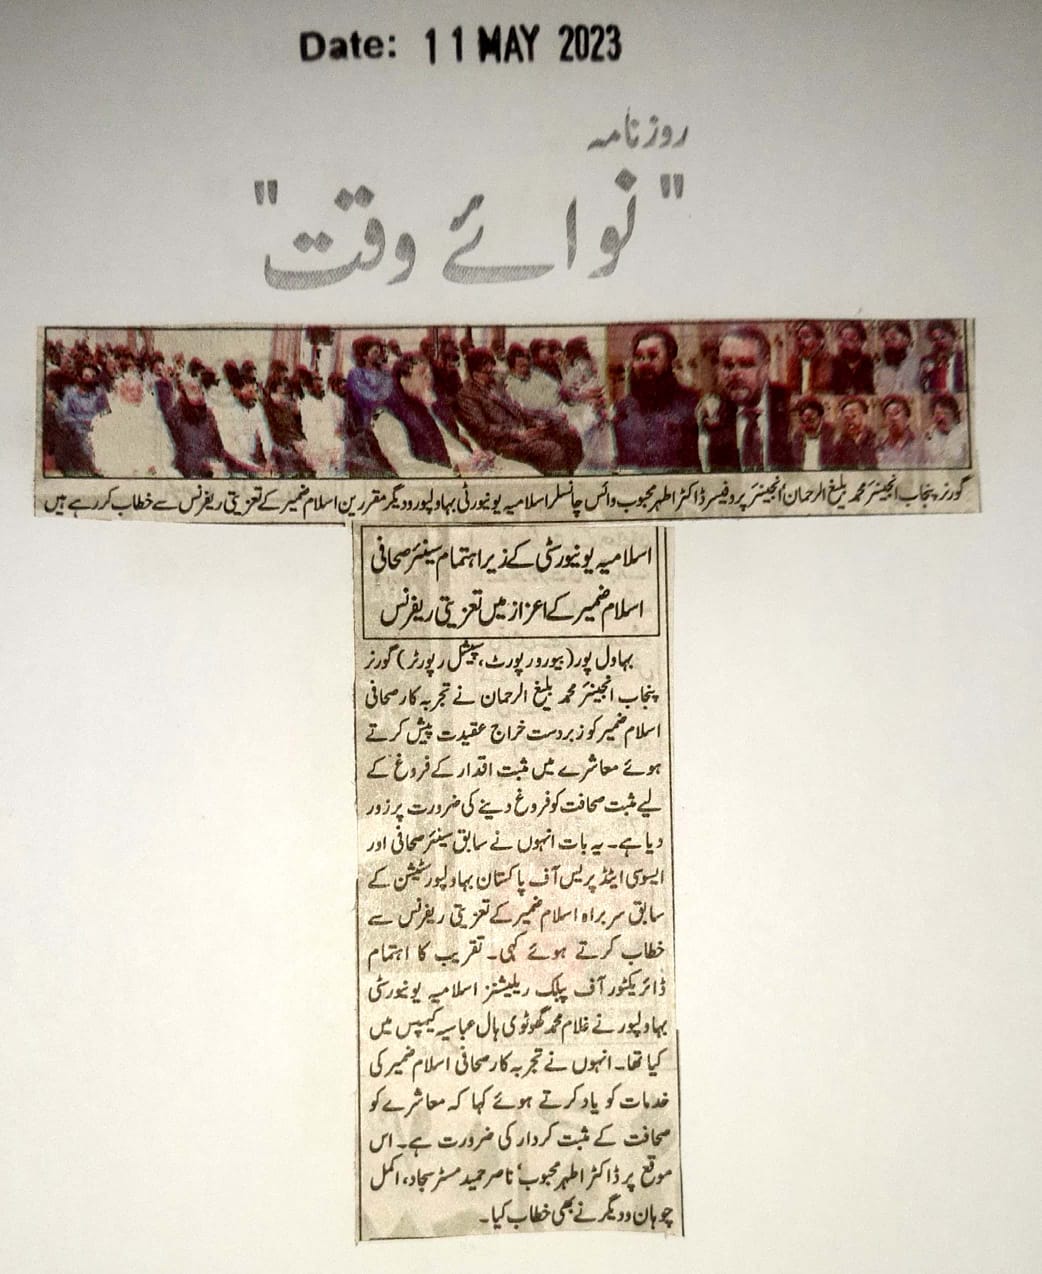 Date: 11 MAY 2023
روزنامہ
"نوائے وقت"
گورنر پنجاب انجینئر محمد بلیغ الرحمان، انجینئر پروفیسر ڈاکٹر اطہر محبوب وائس چانسلر اسلامیہ یونیورٹی بہاولپور و دیگر مقررین اسلام ضمیر کے تعزیتی ریفرنس سے خطاب کر رہے ہیں
اسلامیہ یونیورسٹی کے زیر اہتمام سینئر صحافی
اسلام ضمیر کے اعزاز میں تعزیتی ریفرنس
بہاول پور (بیورو رپورٹ، سپیشل رپورٹر) گورنر
پنجاب انجینئر محمد بلیغ الرحمان نے تجربہ کار صحافی
اسلام ضمیر کو زبردست خراج عقیدت پیش کرتے
ہوئے معاشرے میں مثبت اقدار کے فروغ کے
لیے مثبت صحافت کو فروغ دینے کی ضرورت پر زور
دیا ہے۔ یہ بات انہوں نے سابق سینئر صحافی اور
ایسوسی ایٹڈ پریس آف پاکستان بہاولپور سٹیشن کے
سابق سربراہ اسلام ضمیر کے تعزیتی ریفرنس سے
خطاب کرتے ہوئے کہی۔ تقریب کا اہتمام
ڈائریکٹور آف پبلک ریلیشنز اسلامیہ یونیورسٹی
بہاولپور نے غلام محمد گھوٹوی ہال عباسیہ کیمپس میں
کیا تھا۔ انہوں نے تجربہ کار صحافی اسلام ضمیر کی
خدمات کو یاد کرتے ہوئے کہا کہ معاشرے کو
صحافت کے مثبت کردار کی ضرورت ہے۔ اس
موقع پر ڈاکٹر اطہر محبوب، ناصر حمید مسٹر سجاد، اکمل
چوہان و دیگر نے بھی خطاب کیا۔